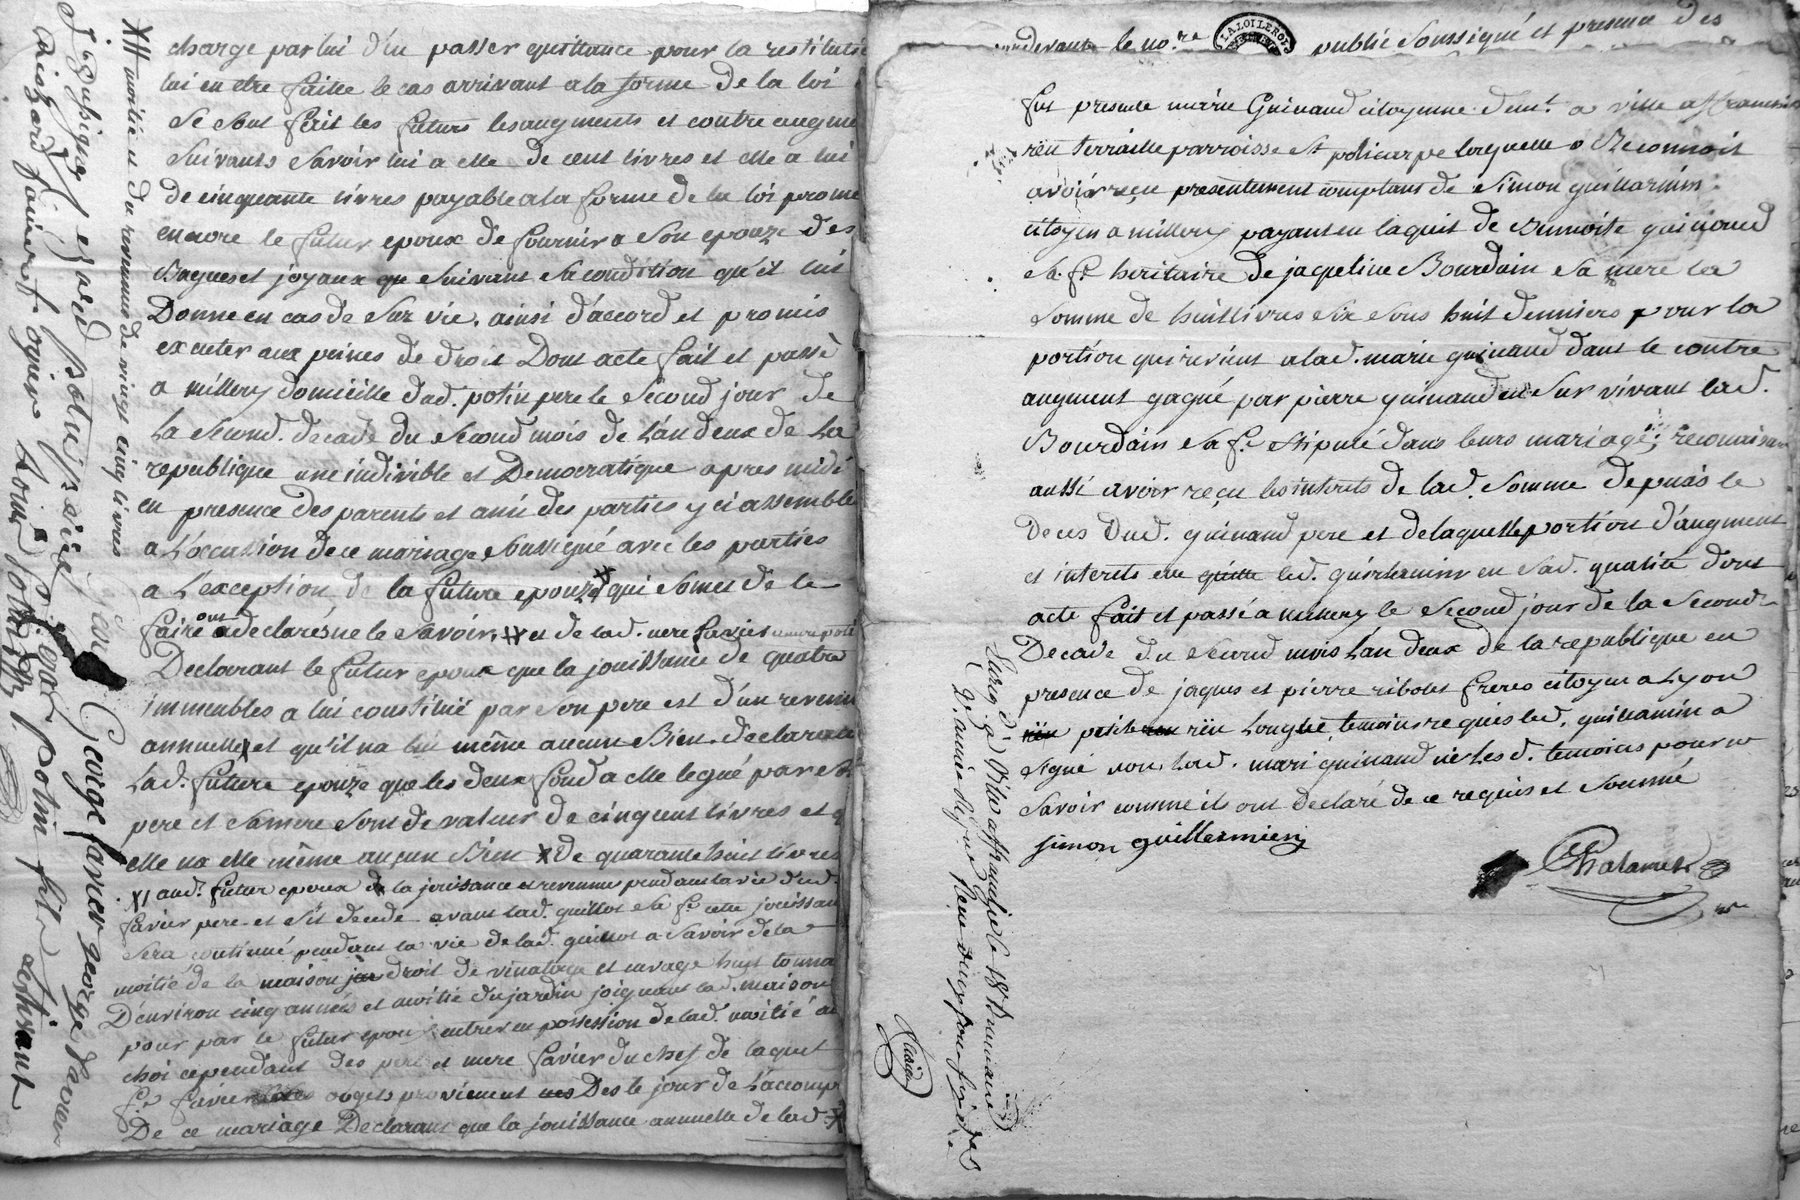 charge par lui d'en passer quittance pour la restituti
lui en etre faitte le cas arrivant a la forme de la loi
Se sont fait les futurs les augments et contre augme
Suivants Savoir lui a elle de cent livres et elle a lui
de cinquante livres payable a la forme de la loi prome
encore le futur epoux de fournir a son epouze des
Bagues et joyaux que suivant sa condition qu'il lui
Donne en cas de Survie, ainsi d'accord et promis
executer aux peines de droit Dont acte fait et passé
a millery domicille dud. potin pere le Second jour de
La Second. decade du Second mois de L'an deux de La
republique une indivible et Democratique apres midi
en presence des parents et ami des parties y ci assemblé
a L'occassion de ce mariage Soussigné avec les parties
a L'exception de la future epouze qui Somés de le
faire ont declarés ne le Savoir, et de lad. mere favier
Declarant le futur epoux que la jouissance de quatre
immeubles a lui constitué par Son pere est d'un revenu
annuelle et qu'il na lui même aucun Bien. declarant
Lad. future epouze que les deux fond a elle legué par
pere et Sa mere Sont de valeur de cinq cent livres et q
elle na elle même aucun Bien de quarante huit livres
XI aud. futur epoux de la jouissance et revenu pendant la vie dud.
favier pere et s'il decede avant lad. guillot Sa fe. cette jouissan
Sera continué pendant la vie de lad. guillot a Savoir de la
moitié de la maison droit de vinatage et cuvage huit tonna
D'environ cinq annéés et moitié du jardin joignant lad. maison
pour par le futur epoux entrer en possession de lad. moitié au
choi cependant des pere et mere favier du chef de laquel
fe. favier objets proviement Des le jour de L'accomp
De ce mariage Declarant que la jouissance annuelle de lad.
XII moitié et du revenu de vingt cinq livres
George favier george favier
potin fils
pardevant le no.re public Soussigné et presence des
LA LOI LE ROI
fut presente marie Guinand citoyenne demt. a ville affranchie
rüe terraille parroisse St policarpe laquelle Reconnoit
avoir reçu presentement comptant de Simon guillarmin
citoyen a millery payant en laquit de Bennoite guinand
Sa fe. heritaire de jaqueline Bourdain Sa mere la
Somme de huit livres six Sous huit denniers pour la
portion qui revient a lad. marie guinand dans le contre
augment gagné par pierre guinand en Survivant lad.
Bourdain Sa fe. Stipulé dans leurs mariage; reconaissan
aussi avoir reçu les interets de lad. Somme depuis le
Deces dud. guinand pere et de laquelle portion d'augment
et interets en quitte led. guillarmin en Sad. qualité dont
acte fait et passé a millery le Second jour de la Seconde
Decade du Second mois L'an deux de la republique en
presence de jaques et pierre ribolet freres citoyen a Lyon
petite rüe Longue, temoins requis led. guillamin a
Signé non lad. mari guinand ni Les d. temoins pour ne
Savoir comme ils ont declaré de ce requis et Sommé
Simon guillermien
Chalamel